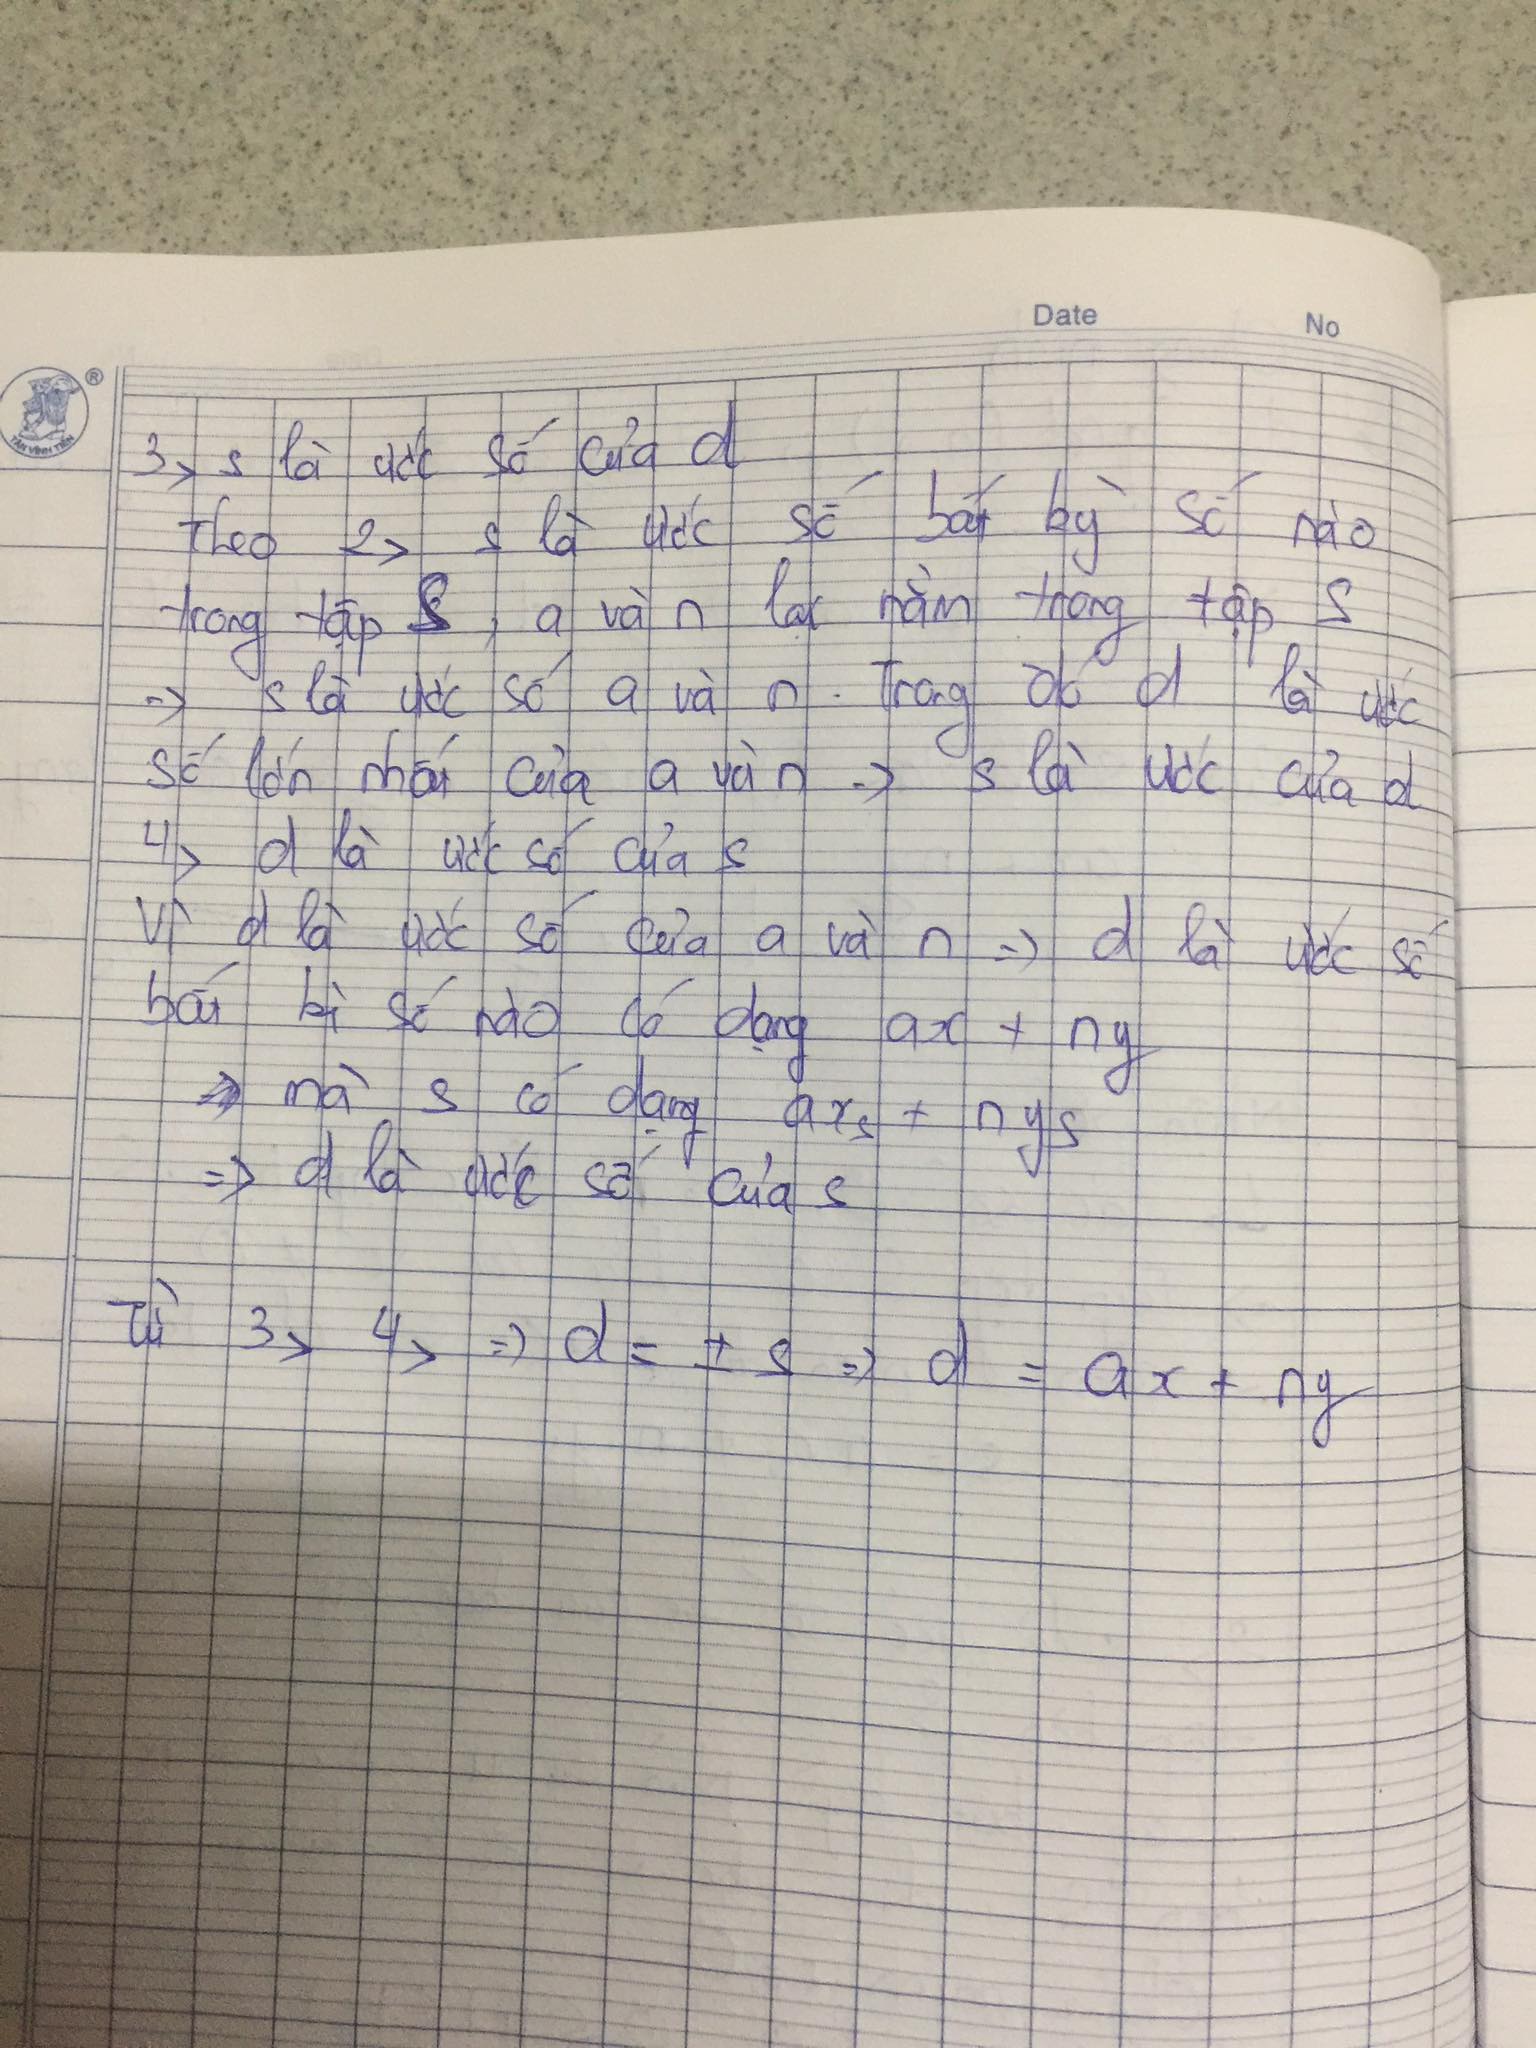 Date No
® TÂN VĨNH TIẾN
3, s là ước số của d
Theo 2, s là ước số bất kỳ số nào
trong tập S, a và n lại nằm trong tập S
=> s là ước số a và n. Trong đó d là ước
số lớn nhất của a và n => s là ước của d
4, d là ước số của s
Vì d là ước số của a và n => d là ước số
bất kì số nào có dạng ax + ny
=> mà s có dạng axₛ + nyₛ
=> d là ước số của s
Từ 3, 4, => d = ± s => d = ax + ny